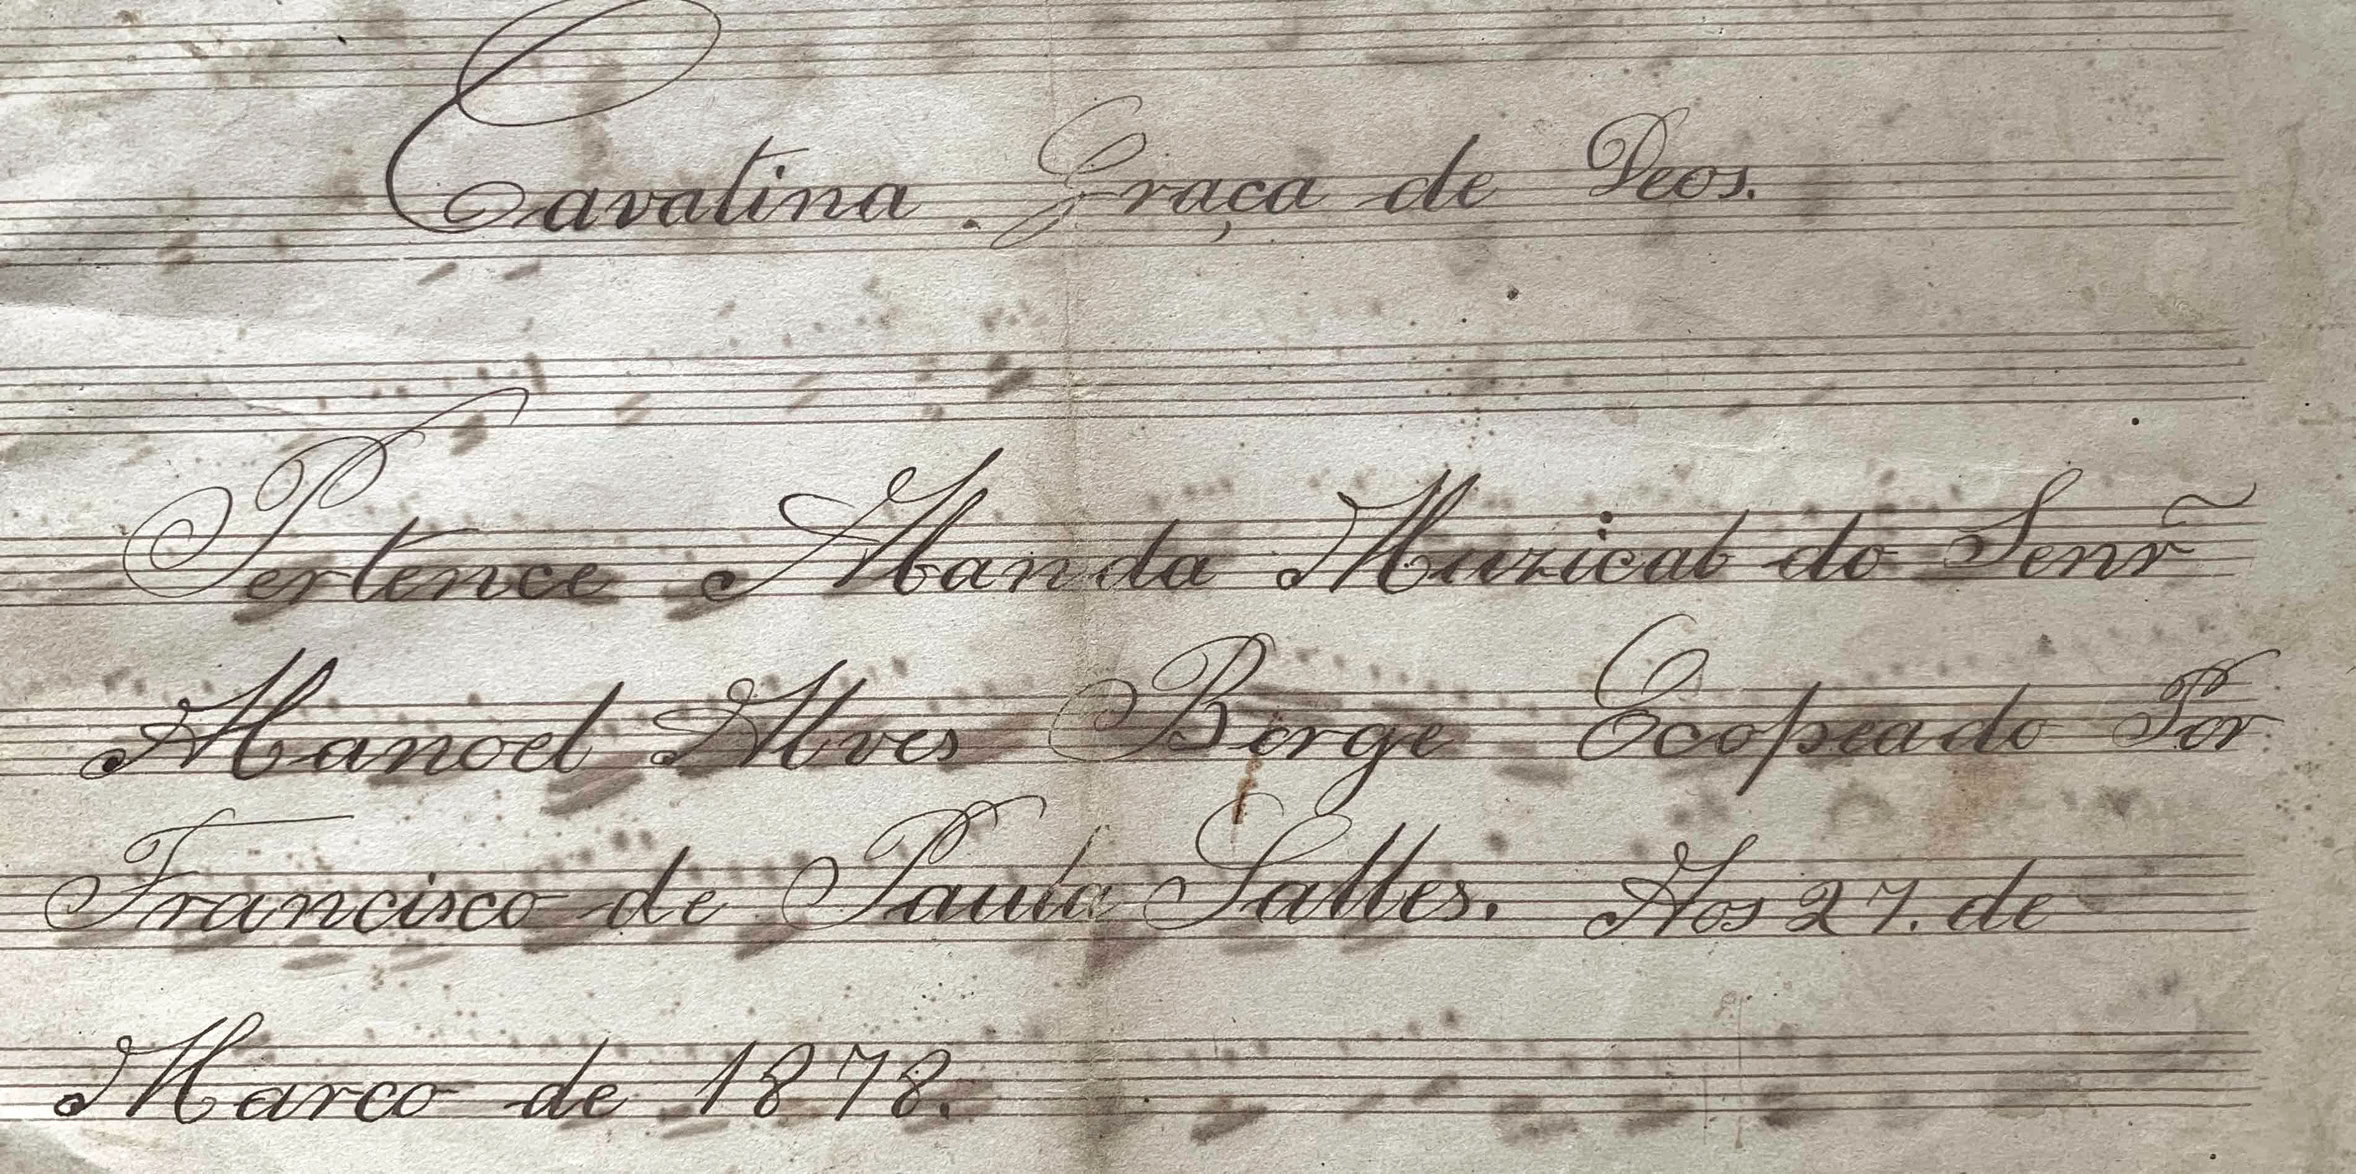 Cavatina. Graça de Deos.
Pertence A Banda Muzical do Senr̃
Manoel Alves Borge Ecopeado Por
Francisco de Paula Salles. Aos 27. de
Marco de 1878.